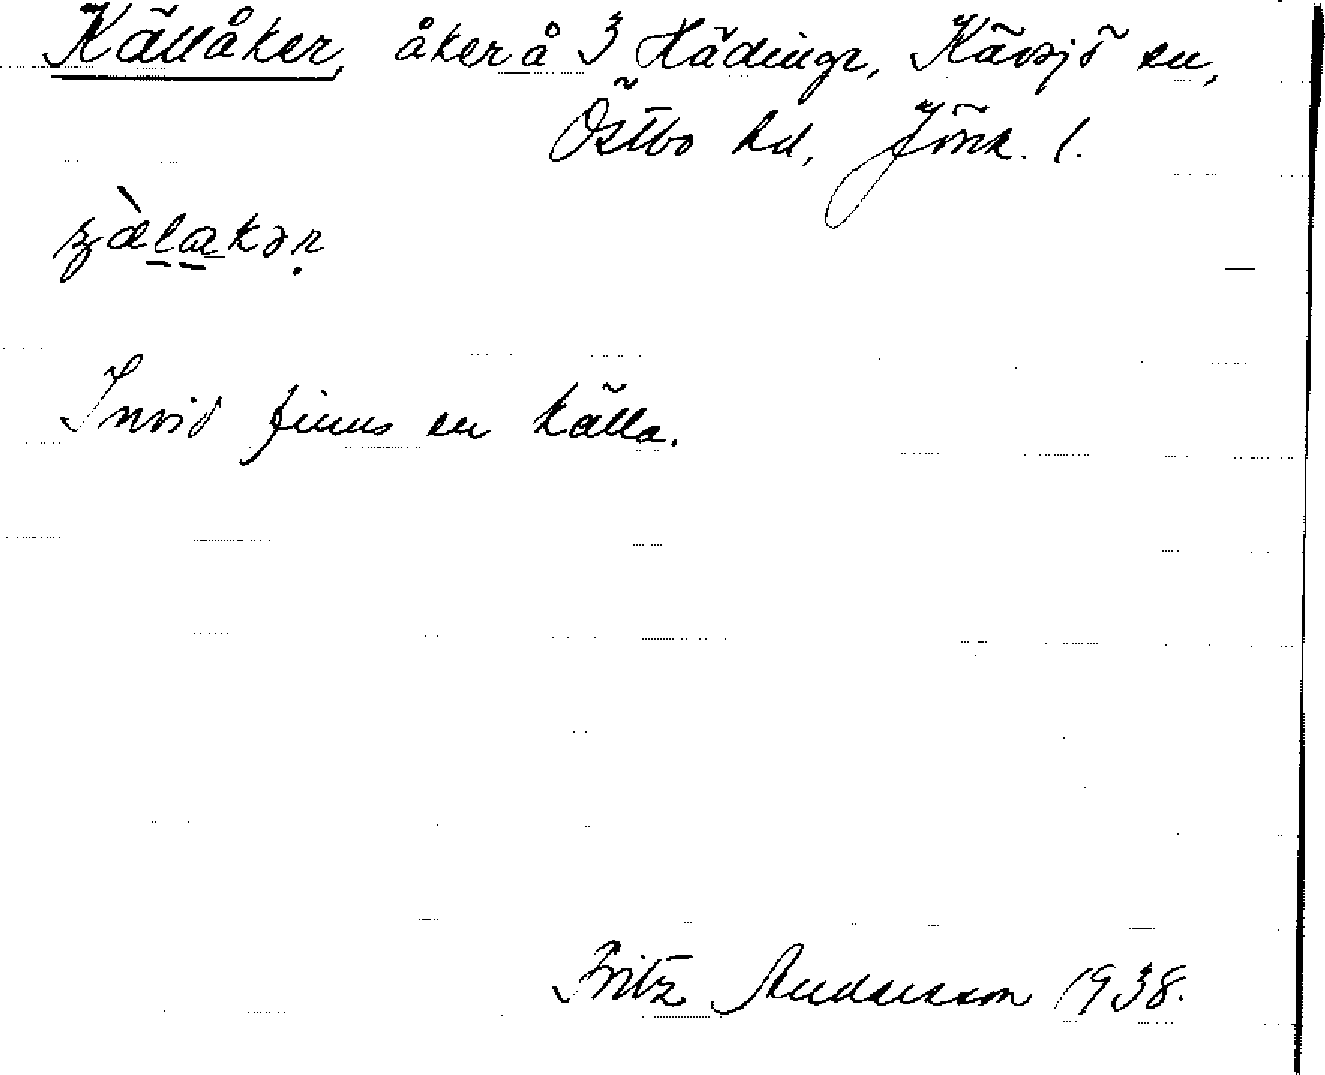 Källåker, åker å 3 Hädinge, Kävsjö sn,
Östbo hd, Jönk. l.
Invid finns en källa.
Fritz Andersson 1938.